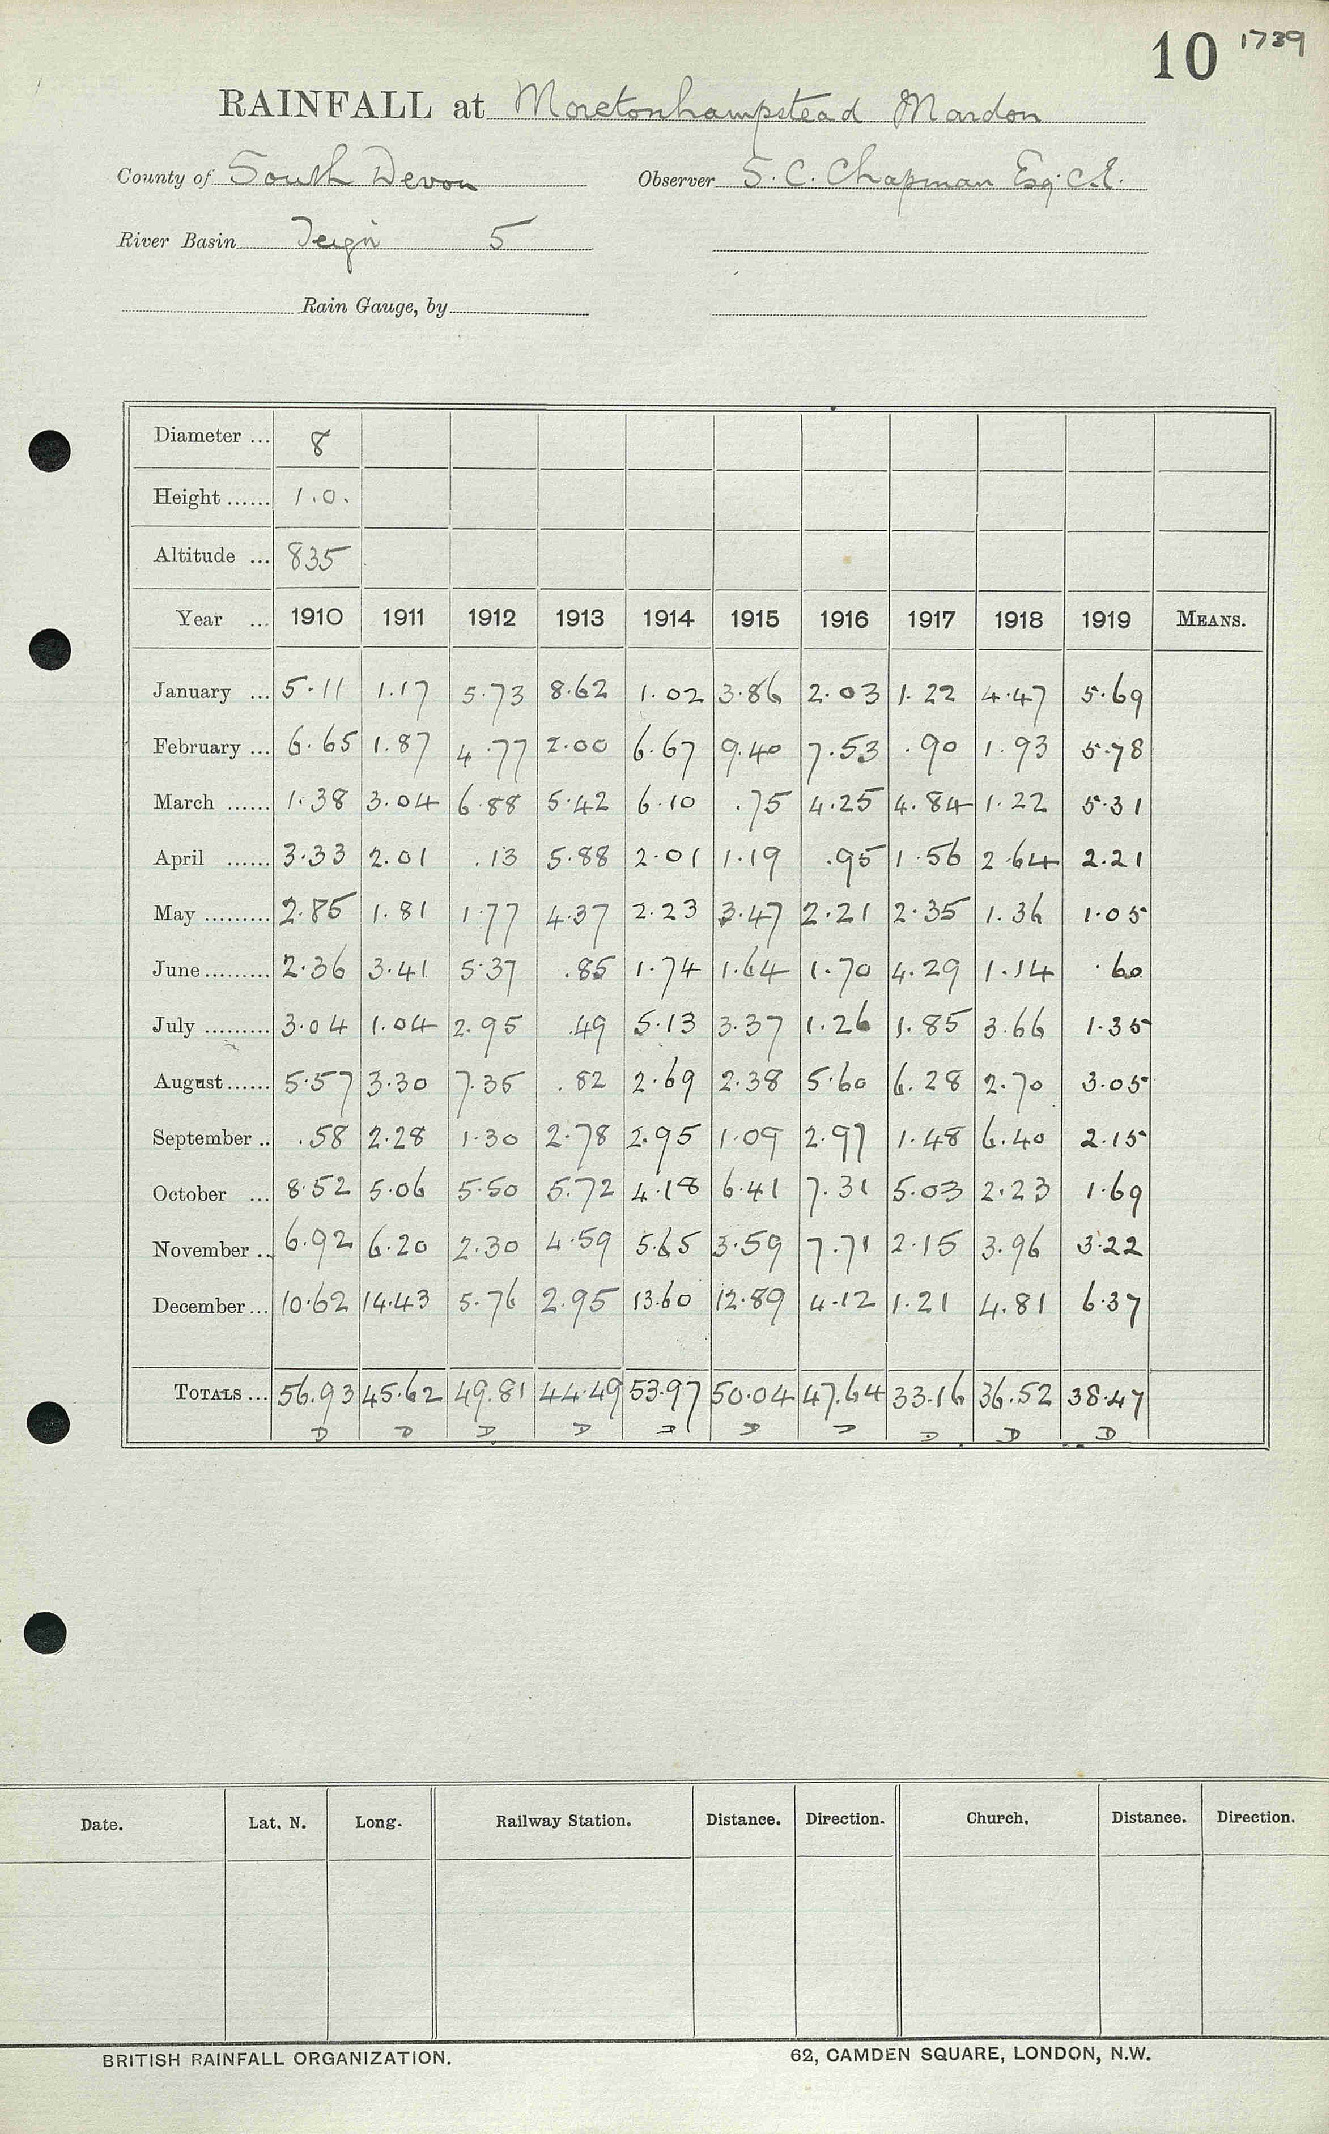 10 1739
RAINFALL at Moretonhampstead Mardon
County of South Devon Observer S. C. Chapman Esq. C.E.
River Basin Teign 5
Rain Gauge, by
Diameter ... 8
Height ...... 1.0.
Altitude ... 835
Year ... 1910 1911 1912 1913 1914 1915 1916 1917 1918 1919 MEANS.
January ... 5.11 1.17 5.73 8.62 1.02 3.86 2.03 1.22 4.47 5.69
February ... 6.65 1.87 4.77 2.00 6.67 9.40 7.53 .90 1.93 5.78
March ...... 1.38 3.04 6.88 5.42 6.10 .75 4.25 4.84 1.22 5.31
April ...... 3.33 2.01 .13 5.88 2.01 1.19 .95 1.56 2.64 2.21
May ......... 2.85 1.81 1.77 4.37 2.23 3.47 2.21 2.35 1.36 1.05
June ......... 2.36 3.41 5.37 .85 1.74 1.64 1.70 4.29 1.14 .60
July ......... 3.04 1.04 2.95 .49 5.13 3.37 1.26 1.85 3.66 1.35
August ...... 5.57 3.30 7.35 .82 2.69 2.38 5.60 6.28 2.70 3.05
September .. .58 2.28 1.30 2.78 2.95 1.09 2.97 1.48 6.40 2.15
October ... 8.52 5.06 5.50 5.72 4.18 6.41 7.31 5.03 2.23 1.69
November .. 6.92 6.20 2.30 4.59 5.65 3.59 7.71 2.15 3.96 3.22
December ... 10.62 14.43 5.76 2.95 13.60 12.89 4.12 1.21 4.81 6.37
TOTALS ... 56.93 45.62 49.81 44.49 53.97 50.04 47.64 33.16 36.52 38.47
D D D D D D D D D D
Date. Lat. N. Long. Railway Station. Distance. Direction. Church. Distance. Direction.
BRITISH RAINFALL ORGANIZATION. 62, CAMDEN SQUARE, LONDON, N.W.